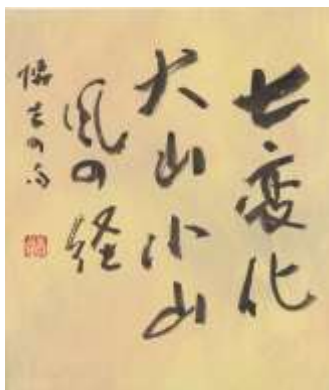 七変化
大山小山
風の経